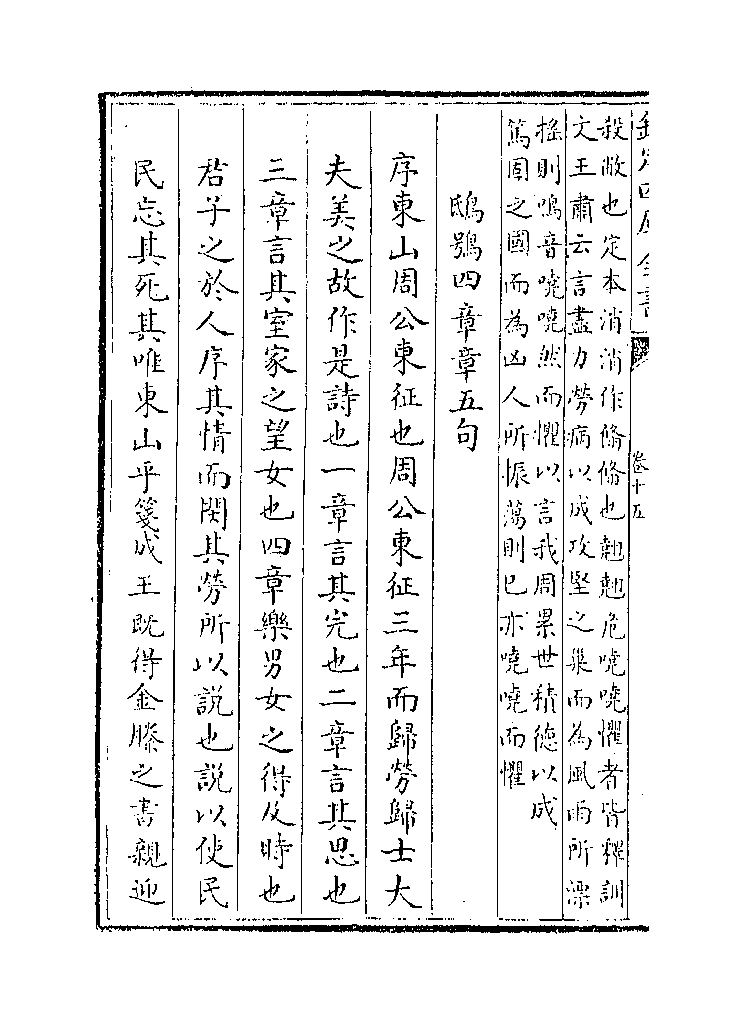 欽定四庫全書
卷十五
殺敝也定本消消作翛翛也翹翹危嘵嘵懼者皆釋訓
文王肅云言盡力勞病以成攻堅之巢而為風雨所漂
揺則鳴音嘵嘵然而懼以言我周累世積徳以成
篤固之國而為凶人所振蕩則已亦嘵嘵而懼
鴟鴞四章章五句
序東山周公東征也周公東征三年而歸勞歸士大
夫美之故作是詩也一章言其完也二章言其思也
三章言其室家之望女也四章樂男女之得及時也
君子之於人序其情而閔其勞所以説也説以使民
民忘其死其唯東山乎箋成王既得金縢之書親迎